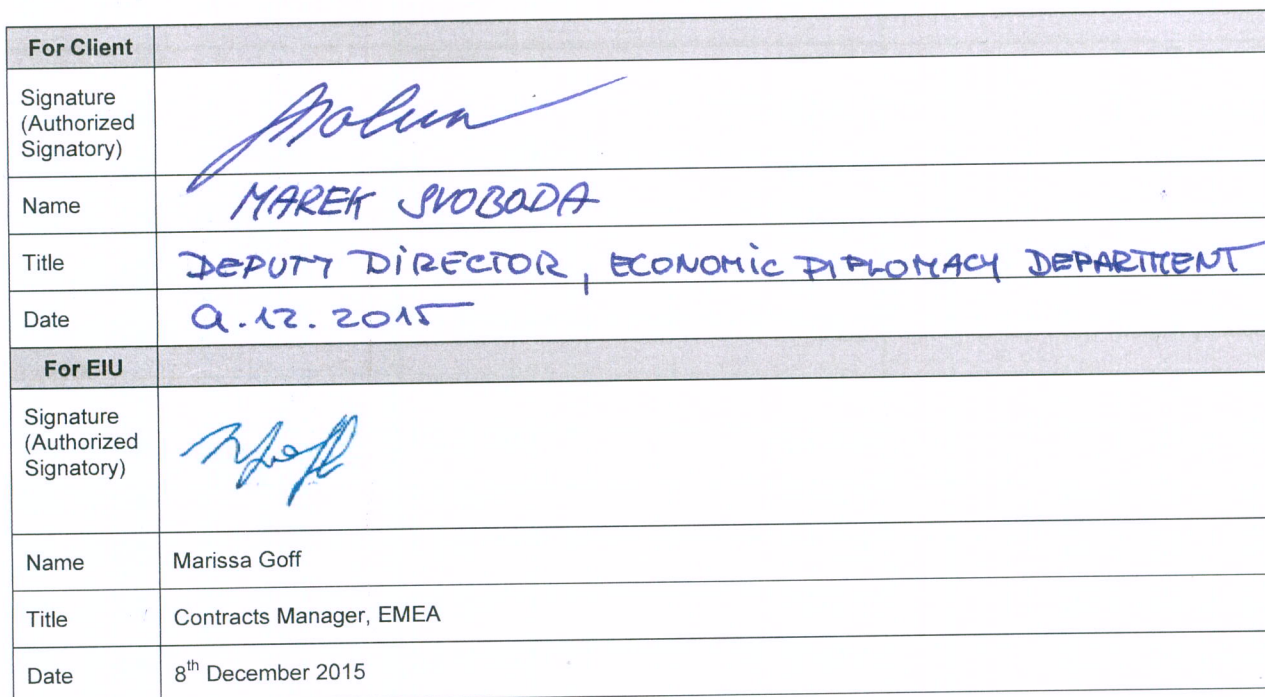 For Client
Signature
(Authorized
Signatory)
Name MAREK SVOBODA
Title DEPUTY DIRECTOR, ECONOMIC DIPLOMACY DEPARTMENT
Date 9.12.2015
For EIU
Signature
(Authorized
Signatory)
Name Marissa Goff
Title Contracts Manager, EMEA
Date 8th December 2015